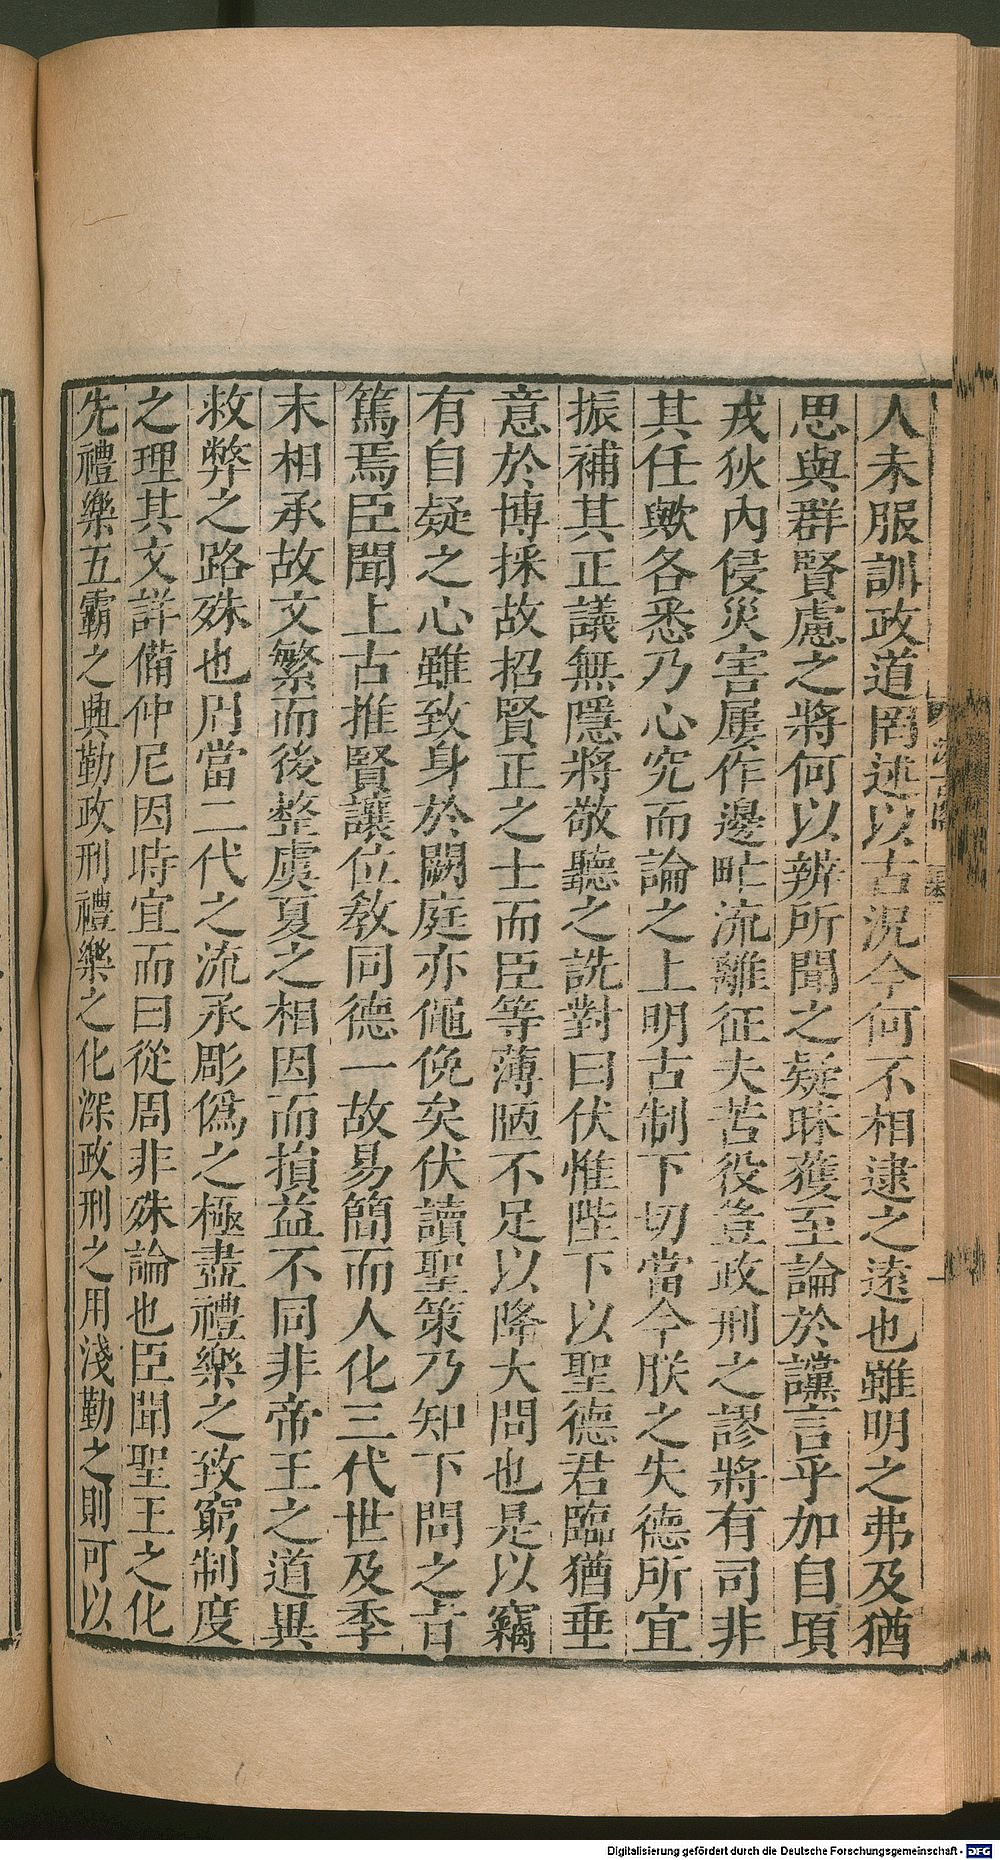 人未服訓政道罔述以古況今何不相逮之遠也雖明之弗及猶
思與群賢慮之將何以辨所聞之疑昧獲至論於讜言乎加自頃
戎狄內侵災害屢作邊甿流離征夫苦役豈政刑之謬將有司非
其任歟各悉乃心究而論之上明古制下切當今朕之失德所宜
振補其正議無隱將敬聽之詵對曰伏惟陛下以聖德君臨猶垂
意於博採故招賢正之士而臣等薄陋不足以降大問也是以竊
有自疑之心雖致身於闕庭亦僶俛矣伏讀聖策乃知下問之旨
篤焉臣聞上古推賢讓位教同德一故易簡而人化三代世及季
末相承故文繁而後整虞夏之相因而損益不同非帝王之道異
救弊之路殊也周當二代之流承彫僞之極盡禮樂之致窮制度
之理其文詳備仲尼因時宜而曰從周非殊論也臣聞聖王之化
先禮樂五霸之興勤政刑禮樂之化深政刑之用淺勤之則可以
Digitalisierung gefördert durch die Deutsche Forschungsgemeinschaft - DFG